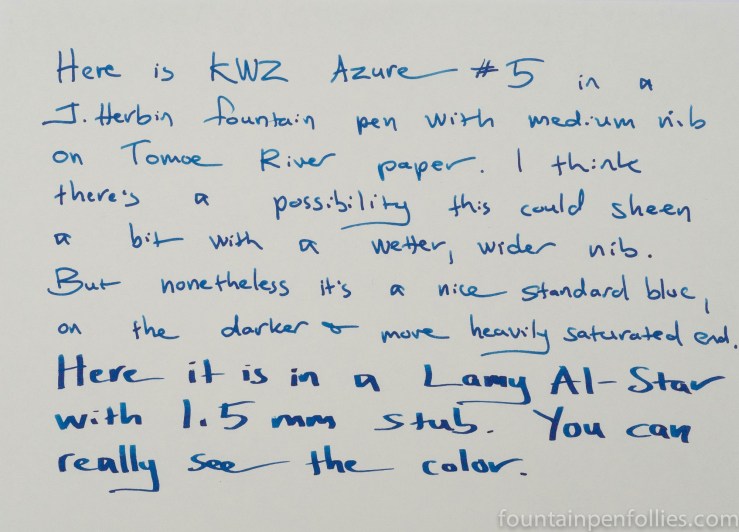 Here is KWZ Azure #5 in a
J. Herbin fountain pen with medium nib
on Tomoe River paper. I think
there's a possibility this could sheen
a bit with a wetter, wider nib.
But nonetheless it's a nice standard blue,
on the darker & more heavily saturated end.
Here it is in a Lamy Al-Star
with 1.5 mm stub. You can
really see the color.
fountainpenfollies.com